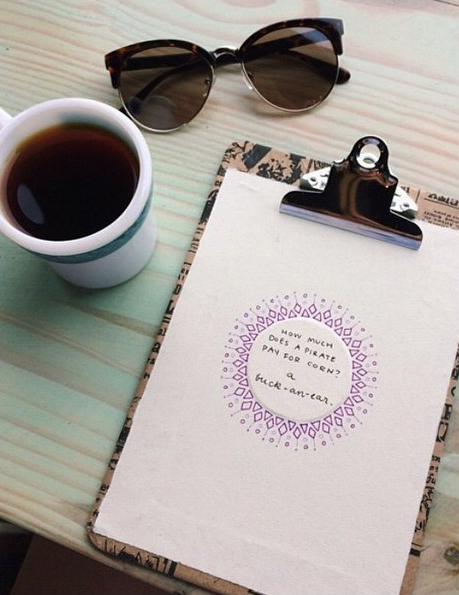 HOW MUCH
DOES A PIRATE
PAY FOR CORN?
a
buck-an-ear.